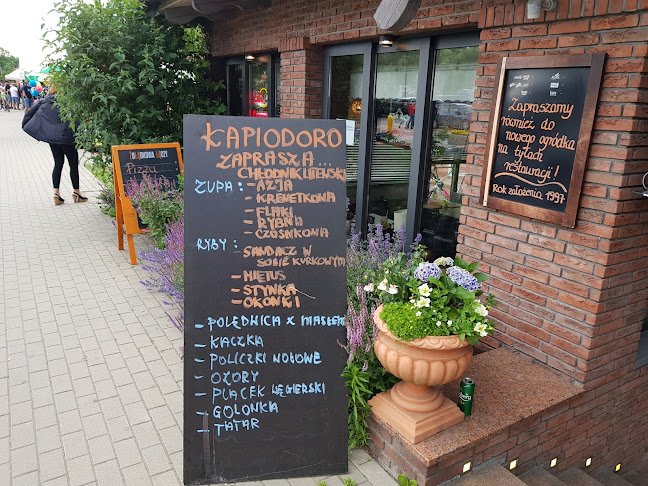 ŁAPIODORO
ZAPRASZA...
CHŁODNIK LITEWSKI
ZUPA: - AZJA
- KREWETKOWA
- FLAKI
- RYBNA
- CZOSNKOWA
RYBY: - SANDACZ W
SOSIE KURKOWYM
- MIĘTUS
- STYNKA
- OKONKI
- POLĘDWICA Z MASŁEM
- KACZKA
- POLICZKI WOŁOWE
- OZORY
- PLACEK WĘGIERSKI
- GOLONKA
- TATAR
Pizza
Zapraszamy
również do
nowego ogródka
na tyłach
restauracji!
Rok założenia 1997